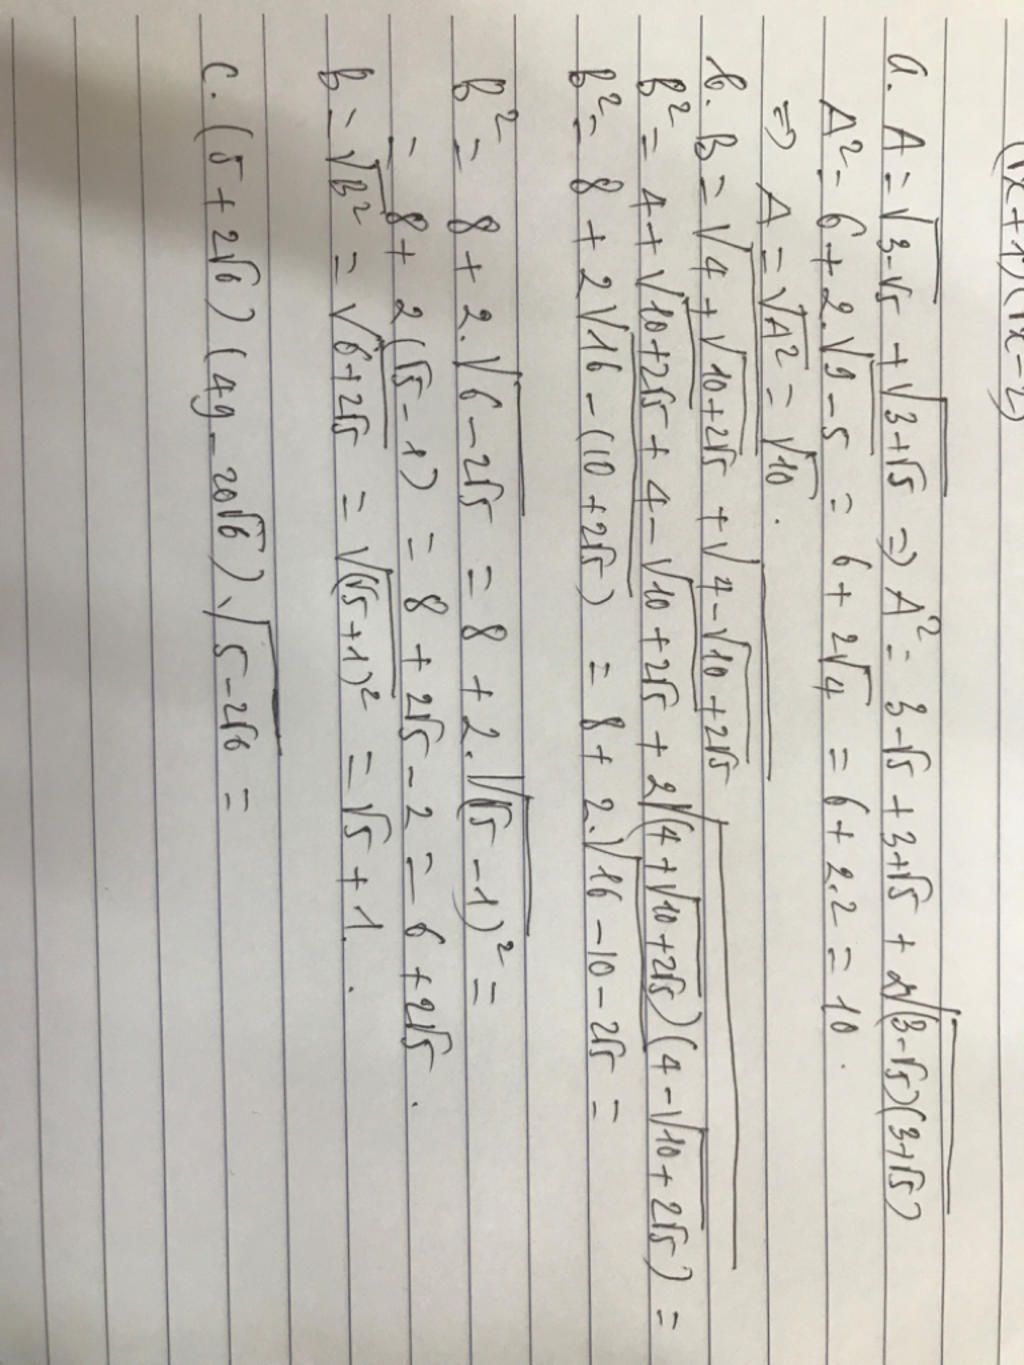 (√x+1)(√x-2)
a. A = √(3-√5) + √(3+√5) => A² = 3-√5 + 3+√5 + 2√((3-√5)(3+√5))
A² = 6 + 2.√(9-5) = 6 + 2√4 = 6 + 2.2 = 10.
=> A = √A² = √10.
b. B = √(4+√(10+2√5)) + √(4-√(10+2√5))
B² = 4+√(10+2√5) + 4-√(10+2√5) + 2√((4+√(10+2√5))(4-√(10+2√5))) =
B² = 8 + 2√(16-(10+2√5)) = 8 + 2.√(16-10-2√5) =
B² = 8 + 2.√(6-2√5) = 8 + 2.√((√5-1)²) =
= 8 + 2(√5-1) = 8 + 2√5 - 2 = 6 + 2√5.
B = √B² = √(6+2√5) = √((√5+1)²) = √5 + 1.
c. (5+2√6)(49-20√6).√(5-2√6) =